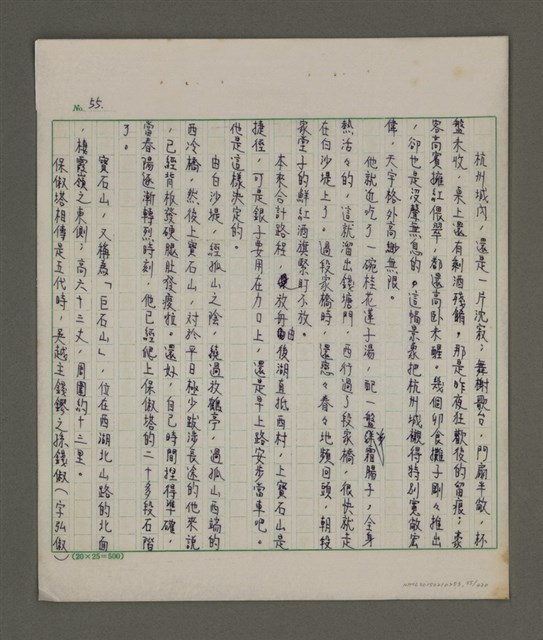 No. 55.
杭州城內，還是一片沈寂；舞榭歌台，門扇半敞，杯
盤未收，桌上還有剩酒殘餚。那是昨夜狂歡後的留痕；豪
客高賓擁紅偎翠，都還高卧未醒。幾個卯食攤子剛々推出
，卻也是沒聲無息的。這幅景象把杭州城襯得特別寬敞宏
偉，天宇格外高緲無限。
他就近吃了一碗桂花蓮子湯，配一盤霜腸子，全身
熱活々的，這就溜出錢塘門，西行過了段家橋，很快就走
在白沙堤上了。過段家橋時，還悠々眷々地頻回頭，朝段
家堂子的鮮紅酒旗緊盯不放。
本來合計路程，放舟由後湖直抵西村，上寶石山是
捷徑，可是銀子要用在刀口上，還是早上路安步當車吧。
他是這樣決定的。
由白沙堤，經孤山之陰，繞過放鶴亭，過孤山西端的
西冷橋，然後上寶石山，對於平日極少跋涉長途的他來說
，已經背板發硬腿肚發痠啦。還好，自己時間捏得準確，
當春陽逐漸轉烈時刻，他已經爬上保俶塔的二十多段石階
了。
寶石山，又稱為「巨石山」，位在西湖北山路的北面
，棲霞嶺之東側；高六十三丈，周圍約十三里。
保俶塔相傳是五代時，吳越王錢鏐之孫錢俶（字弘俶）
(20×25=500)